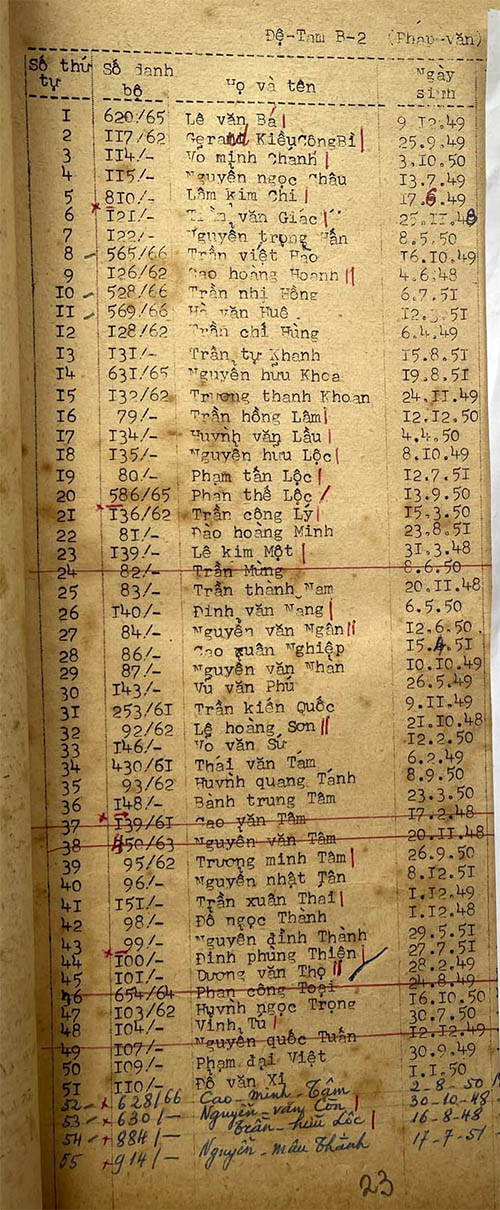 Đệ-Tam B-2 (Pháp-văn)
Số thứ tự Số danh bộ Họ và tên Ngày sinh
1 620/65 Lê văn Bá 9.12.49
2 117/62 Gérard KiềuCôngBỉ 25.9.49
3 114/- Võ minh Chánh 3.10.50
4 115/- Nguyễn ngọc Châu 13.7.49
5 810/- Lâm kim Chi 17.6.49
6 121/- Trần văn Giác 25.11.48
7 122/- Nguyễn trọng Hấn 8.5.50
8 565/66 Trần việt Hào 16.10.49
9 126/62 Cao hoàng Hoanh 4.6.48
10 528/66 Trần nhị Hồng 6.7.51
11 569/66 Hà văn Huê 12.3.51
12 128/62 Trần chí Hùng 6.4.49
13 131/- Trần tự Khanh 15.8.51
14 631/65 Nguyễn hưu Khoa 19.8.51
15 132/62 Trương thanh Khoan 24.11.49
16 79/- Trần hồng Lâm 12.12.50
17 134/- Huỳnh văn Lầu 4.4.50
18 135/- Nguyễn hưu Lộc 8.10.49
19 80/- Phạm tấn Lộc 12.7.51
20 586/65 Phan thế Lộc 13.9.50
21 136/62 Trần công Lý 15.3.50
22 81/- Đào hoàng Minh 23.8.51
23 139/- Lê kim Một 31.3.48
24 82/- Trần Mừng 8.6.50
25 83/- Trần thành Nam 20.11.48
26 140/- Đinh văn Năng 6.5.50
27 84/- Nguyễn văn Ngân 12.6.50
28 86/- Cao xuân Nghiệp 15.4.51
29 87/- Nguyễn văn Nhàn 10.10.49
30 143/- Vũ văn Phú 26.5.49
31 253/61 Trần kiến Quốc 9.11.49
32 92/62 Lê hoàng Sơn 21.10.48
33 146/- Võ văn Sử 12.2.50
34 430/61 Thái văn Tám 6.2.49
35 93/62 Huỳnh quang Tánh 8.9.50
36 148/- Bành trung Tâm 23.3.50
37 139/61 Cao văn Tâm 17.2.48
38 450/63 Nguyễn văn Tâm 20.11.48
39 95/62 Trương minh Tâm 26.9.50
40 96/- Nguyễn nhật Tân 8.12.51
41 151/- Trần xuân Thai 1.12.49
42 98/- Đỗ ngọc Thành 1.12.48
43 99/- Nguyễn đình Thành 29.5.51
44 100/- Đinh phùng Thiện 27.7.51
45 101/- Dương văn Thọ 28.2.49
46 654/64 Phan công Toại 24.8.49
47 103/62 Huỳnh ngọc Trọng 16.10.50
48 104/- Vĩnh Tú 30.7.50
49 107/- Nguyễn quốc Tuấn 12.12.49
50 109/- Phạm đại Việt 30.9.49
51 110/- Đỗ văn Xi 1.1.50
52 628/66 Cao-minh-Tâm 2-8-50
53 630/- Nguyễn-văn Côn 30-10-48
54 884/- Trần-hữu Lộc 16-8-48
55 914/- Nguyễn-mậu Thành 17-7-51
23